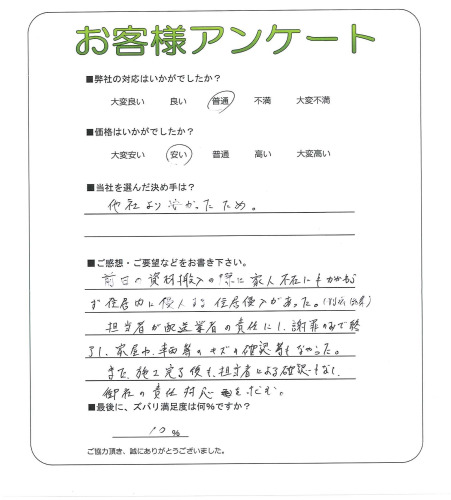 お客様アンケート
■弊社の対応はいかがでしたか?
大変良い 良い 普通 不満 大変不満
■価格はいかがでしたか?
大変安い 安い 普通 高い 大変高い
■当社を選んだ決め手は?
他社より安かったため。
■ご感想・ご要望などをお書き下さい。
前日の資材搬入の際に家人不在にもかかわら
ず住居内に侵入する住居侵入があった。
担当者が配送業者の責任にし、謝罪のみで終
了し、家屋や、車両等のキズの確認等もなかった。
また、施工完了後も、担当者による確認もなし、
御社の責任対応を求む。
■最後に、ズバリ満足度は何%ですか?
10 %
ご協力頂き、誠にありがとうございました。